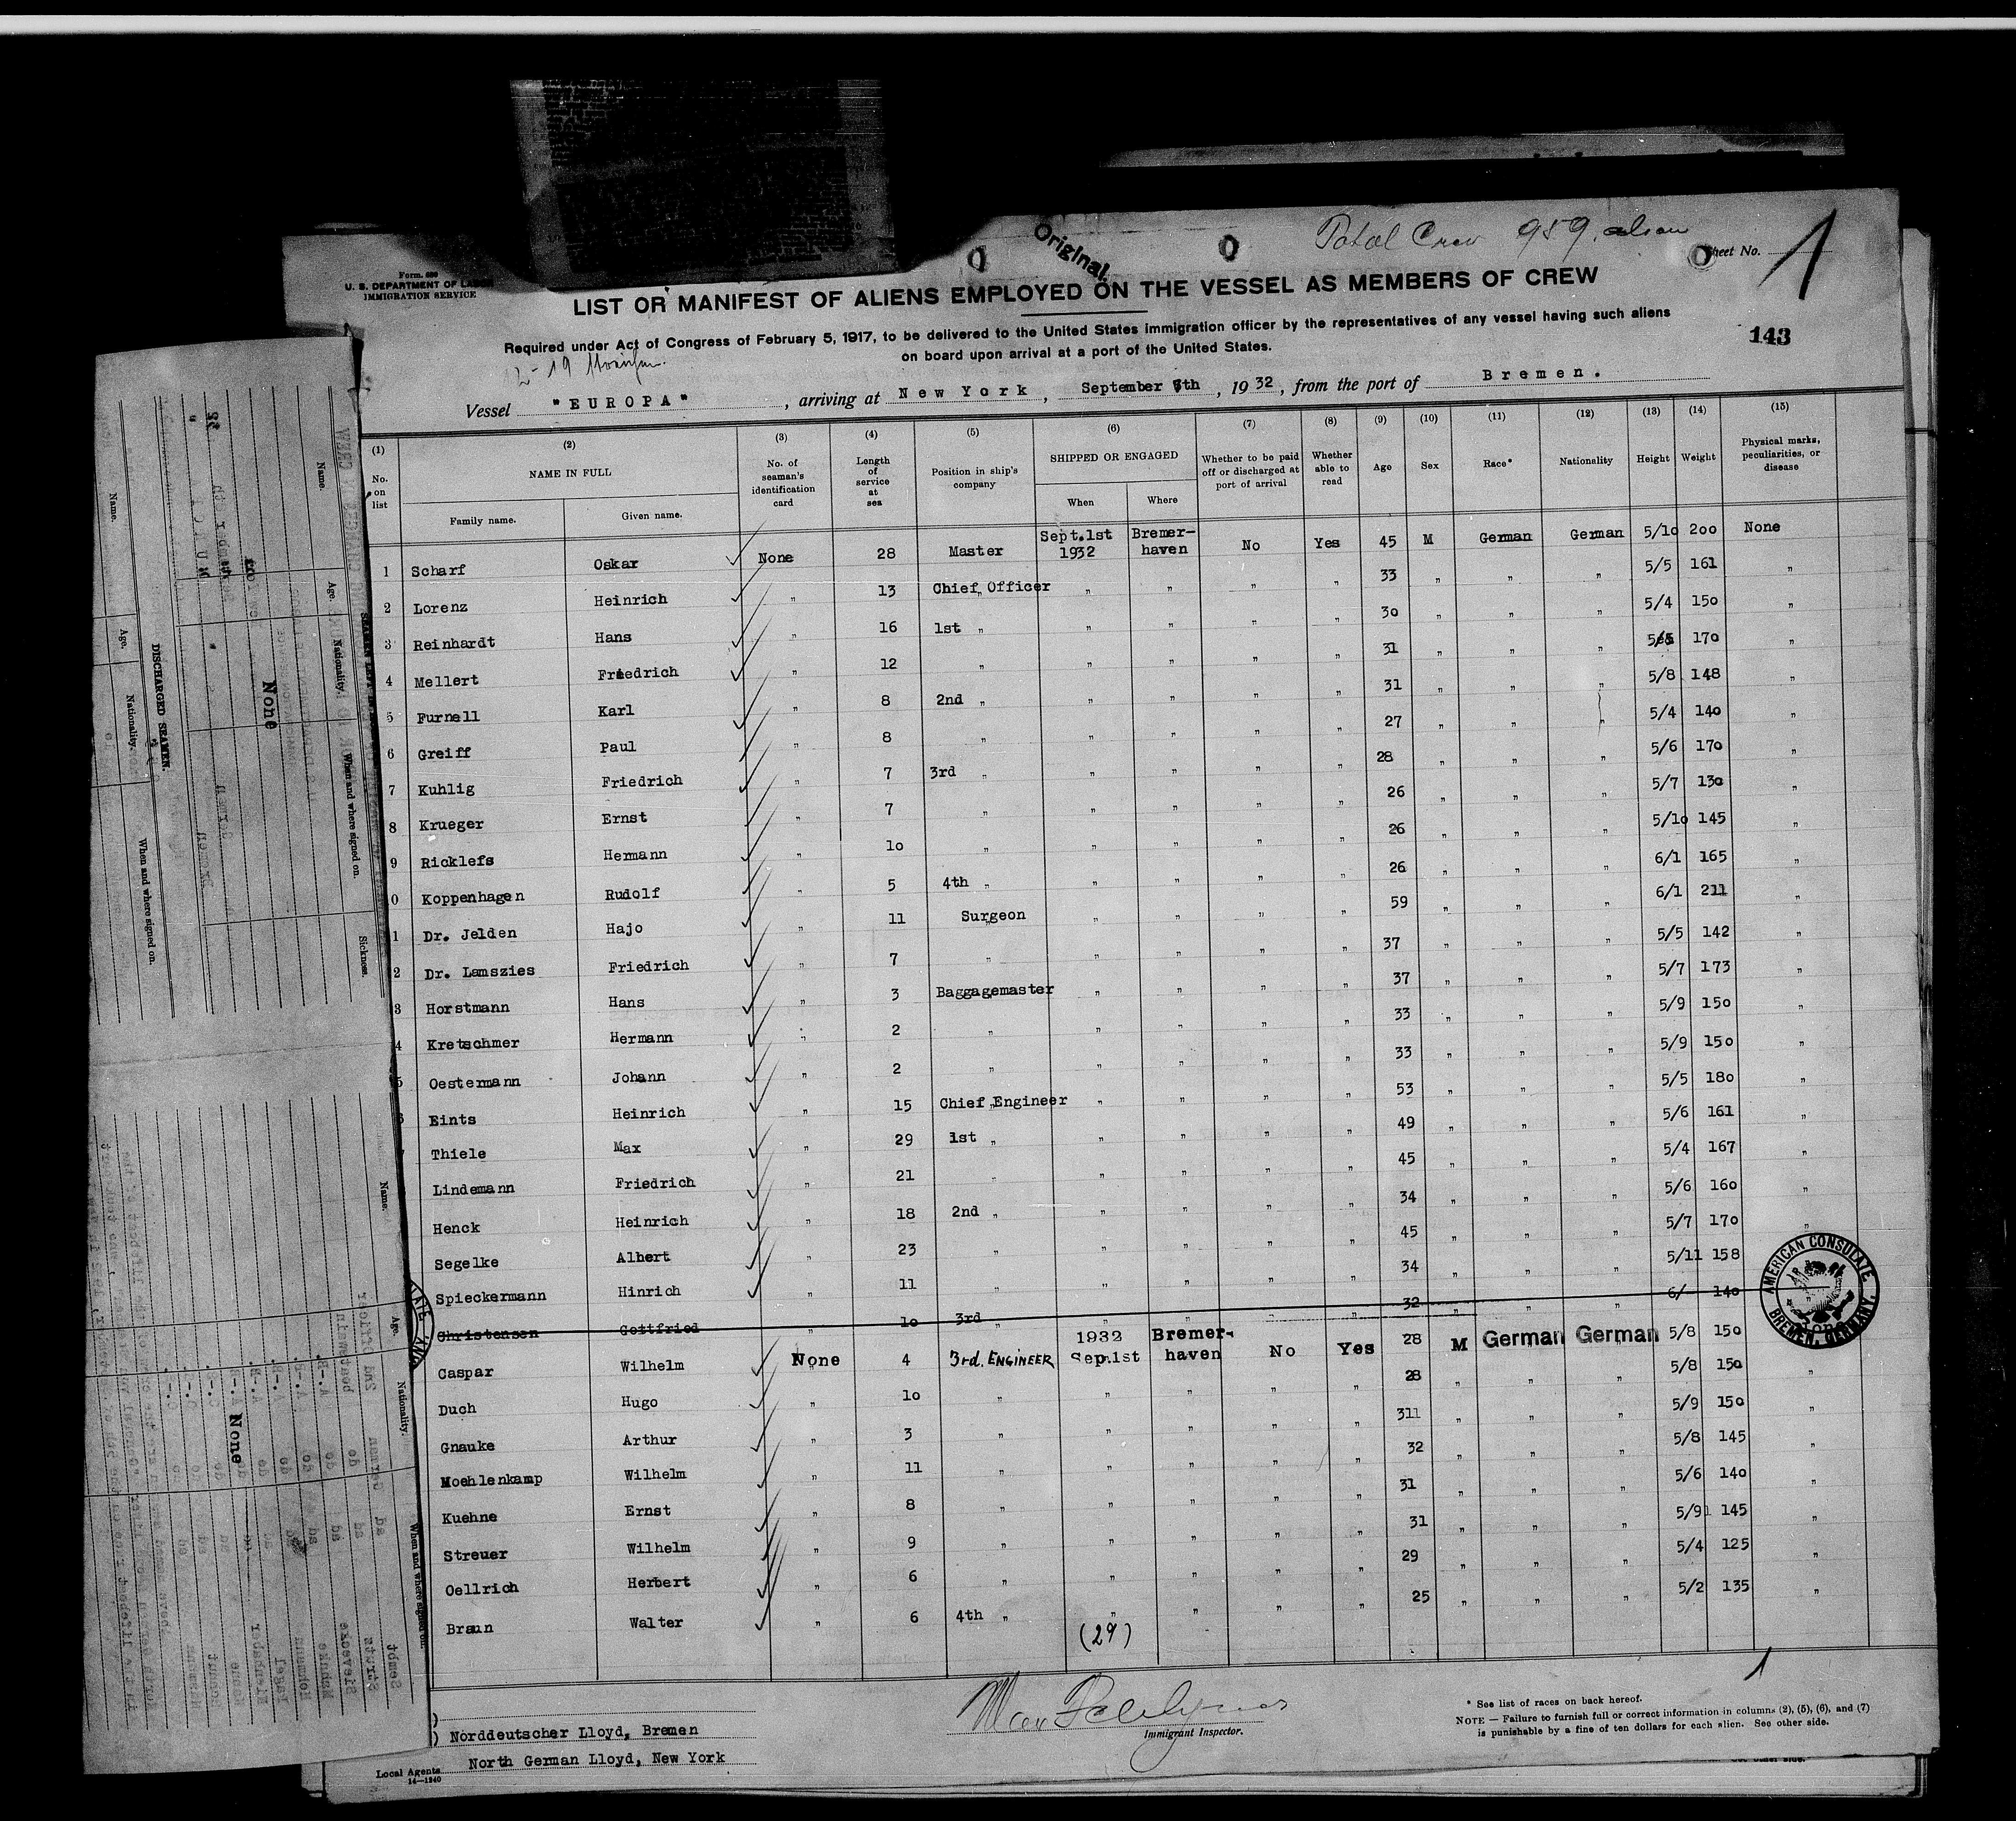 Original.
Total Crew 959. alien
Sheet No. 1
Form. 680
U. S. DEPARTMENT OF LABOR
IMMIGRATION SERVICE
LIST OR MANIFEST OF ALIENS EMPLOYED ON THE VESSEL AS MEMBERS OF CREW
Required under Act of Congress of February 5, 1917, to be delivered to the United States immigration officer by the representatives of any vessel having such aliens
on board upon arrival at a port of the United States.
143
Vessel "EUROPA", arriving at New York, September 7th, 1932, from the port of Bremen.
(1) (2) (3) (4) (5) (6) (7) (8) (9) (10) (11) (12) (13) (14) (15)
No. on list NAME IN FULL Family name. Given name. No. of seaman's identification card Length of service at sea Position in ship's company SHIPPED OR ENGAGED When Where Whether to be paid off or discharged at port of arrival Whether able to read Age Sex Race* Nationality Height Weight Physical marks, peculiarities, or disease
1 Scharf Oskar None 28 Master Sept.1st 1932 Bremer-haven No Yes 45 M German German 5/10 200 None
2 Lorenz Heinrich " 13 Chief Officer " " " " 33 " " " 5/5 161 "
3 Reinhardt Hans " 16 1st " " " " " 30 " " " 5/4 150 "
4 Mellert Friedrich " 12 " " " " " 31 " " " 5/5 170 "
5 Furnell Karl " 8 2nd " " " " " 31 " " " 5/8 148 "
6 Greiff Paul " 8 " " " " " 27 " " " 5/4 140 "
7 Kuhlig Friedrich " 7 3rd " " " " " 28 " " " 5/6 170 "
8 Krueger Ernst " 7 " " " " " 26 " " " 5/7 130 "
9 Ricklefs Hermann " 10 " " " " " 26 " " " 5/10 145 "
0 Koppenhagen Rudolf " 5 4th " " " " " 26 " " " 6/1 165 "
1 Dr. Jelden Hajo " 11 Surgeon " " " " 59 " " " 6/1 211 "
2 Dr. Lamszies Friedrich " 7 " " " " " 37 " " " 5/5 142 "
3 Horstmann Hans " 3 Baggagemaster " " " " 37 " " " 5/7 173 "
4 Kretschmer Hermann " 2 " " " " " 33 " " " 5/9 150 "
5 Oestermann Johann " 2 " " " " " 33 " " " 5/9 150 "
Eints Heinrich " 15 Chief Engineer " " " " 53 " " " 5/5 180 "
Thiele Max " 29 1st " " " " " 49 " " " 5/6 161 "
Lindemann Friedrich " 21 " " " " " 45 " " " 5/4 167 "
Henck Heinrich " 18 2nd " " " " " 34 " " " 5/6 160 "
Segelke Albert " 23 " " " " " 45 " " " 5/7 170 "
Spieckermann Hinrich " 11 " " " " " 34 " " " 5/11 158
Christensen Gottfried " 10 3rd " " " " " 32 " " " 6/ 140
Caspar Wilhelm None 4 3rd. ENGINEER 1932 Sep.1st Bremer-haven No Yes 28 M German German 5/8 150
Duch Hugo " 10 " " " " " 28 " " " 5/8 150 "
Gnauke Arthur " 3 " " " " " 311 " " " 5/9 150 "
Moehlenkamp Wilhelm " 11 " " " " " 32 " " " 5/8 145 "
Kuehne Ernst " 8 " " " " " 31 " " " 5/6 140 "
Streuer Wilhelm " 9 " " " " " 31 " " " 5/9 145 "
Oellrich Herbert " 6 " " " " " 29 " " " 5/4 125 "
Braun Walter " 6 4th " " " " " 25 " " " 5/2 135 "
(29)
AMERICAN CONSULATE
BREMEN, GERMANY.
Immigrant Inspector.
Norddeutscher Lloyd, Bremen
North German Lloyd, New York
Local Agents
14—1240
* See list of races on back hereof.
NOTE — Failure to furnish full or correct information in columns (2), (5), (6), and (7)
is punishable by a fine of ten dollars for each alien. See other side.
DISCHARGED SEAMEN.
Name. Age. Nationality. When and where signed on.
Name. Age. Nationality. When and where signed on. Sickness.
None
Name. Age. Nationality. When and where signed on.
None